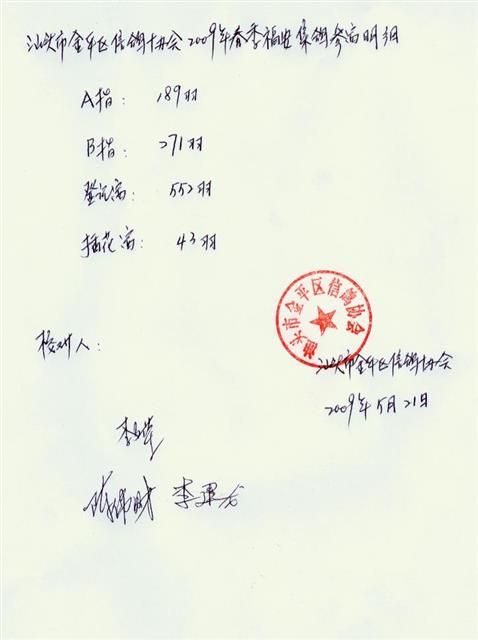 汕头市金平区信鸽协会2009年春季福安集鸽参赛明细
A指: 189羽
B指: 271羽
登记鸽: 552羽
插花鸽: 43羽
汕头市金平区信鸽协会
校对人:
汕头市金平区信鸽协会
2009年5月21日